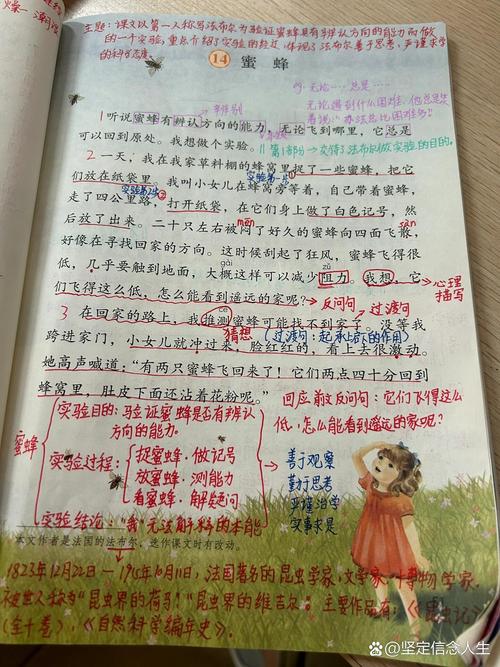 燥—潮湿
主题：课文以第一人称写法布尔为验证蜜蜂具有辨认方向的能力而做
的一个实验，重点介绍了实验的经过，体现了法布尔善于思考、严谨求学
的科学态度。
14 蜜蜂
无论……总是……
无论遇到什么困难，他总是笑
着说："办法总比困难多！"
1 听说蜜蜂有辨认方向的能力，无论飞到哪里，它总是
可以回到原处。我想做个实验。
第1部分→交待了法布尔做实验的目的。
2 一天，我在我家草料棚的蜂窝里捉了一些蜜蜂，把它
实验第一步
们放在纸袋里。我叫小女儿在蜂窝旁等着，自己带着蜜蜂，
走了四公里路，打开纸袋，在它们身上做了白色记号，然
mēn
后放了出来。二十只左右被闷了好久的蜜蜂向四面飞散，
好像在寻找回家的方向。这时候刮起了狂风，蜜蜂飞得很
zǔ
低，几乎要触到地面，大概这样可以减少阻力。我想，它
心理
描写
们飞得这么低，怎么能看到遥远的家呢？
反问句
过渡句
3 在回家的路上，我推测蜜蜂可能找不到家了。没等我
猜想
（过渡句：起承上启下的作用）
跨进家门，小女儿就冲过来，脸红红的，看上去很激动。
她高声喊道："有两只蜜蜂飞回来了！它们两点四十分回到
蜂窝里，肚皮下面还沾着花粉呢。"
回应前文反问句：它们飞得这么
低，怎么能看到遥远的家呢？
蜜蜂
实验目的：验证蜜蜂是否有辨认
方向的能力。
实验过程：
捉蜜蜂·做记号
放蜜蜂·测能力
看蜜蜂·解疑问
实验结论："我"无法解释的本能
善于观察
勤于思考
严谨治学
实事求是
本文作者是法国的法布尔，选作课文时有改动。
1823年12月22日—1915年10月11日，法国著名的昆虫学家，文学家，博物学家。
被世人称为"昆虫界的荷马""昆虫界的维吉尔"。主要作品有：《昆虫记》
（全十卷），《自然科学编年史》。
百家号/坚定信念人生